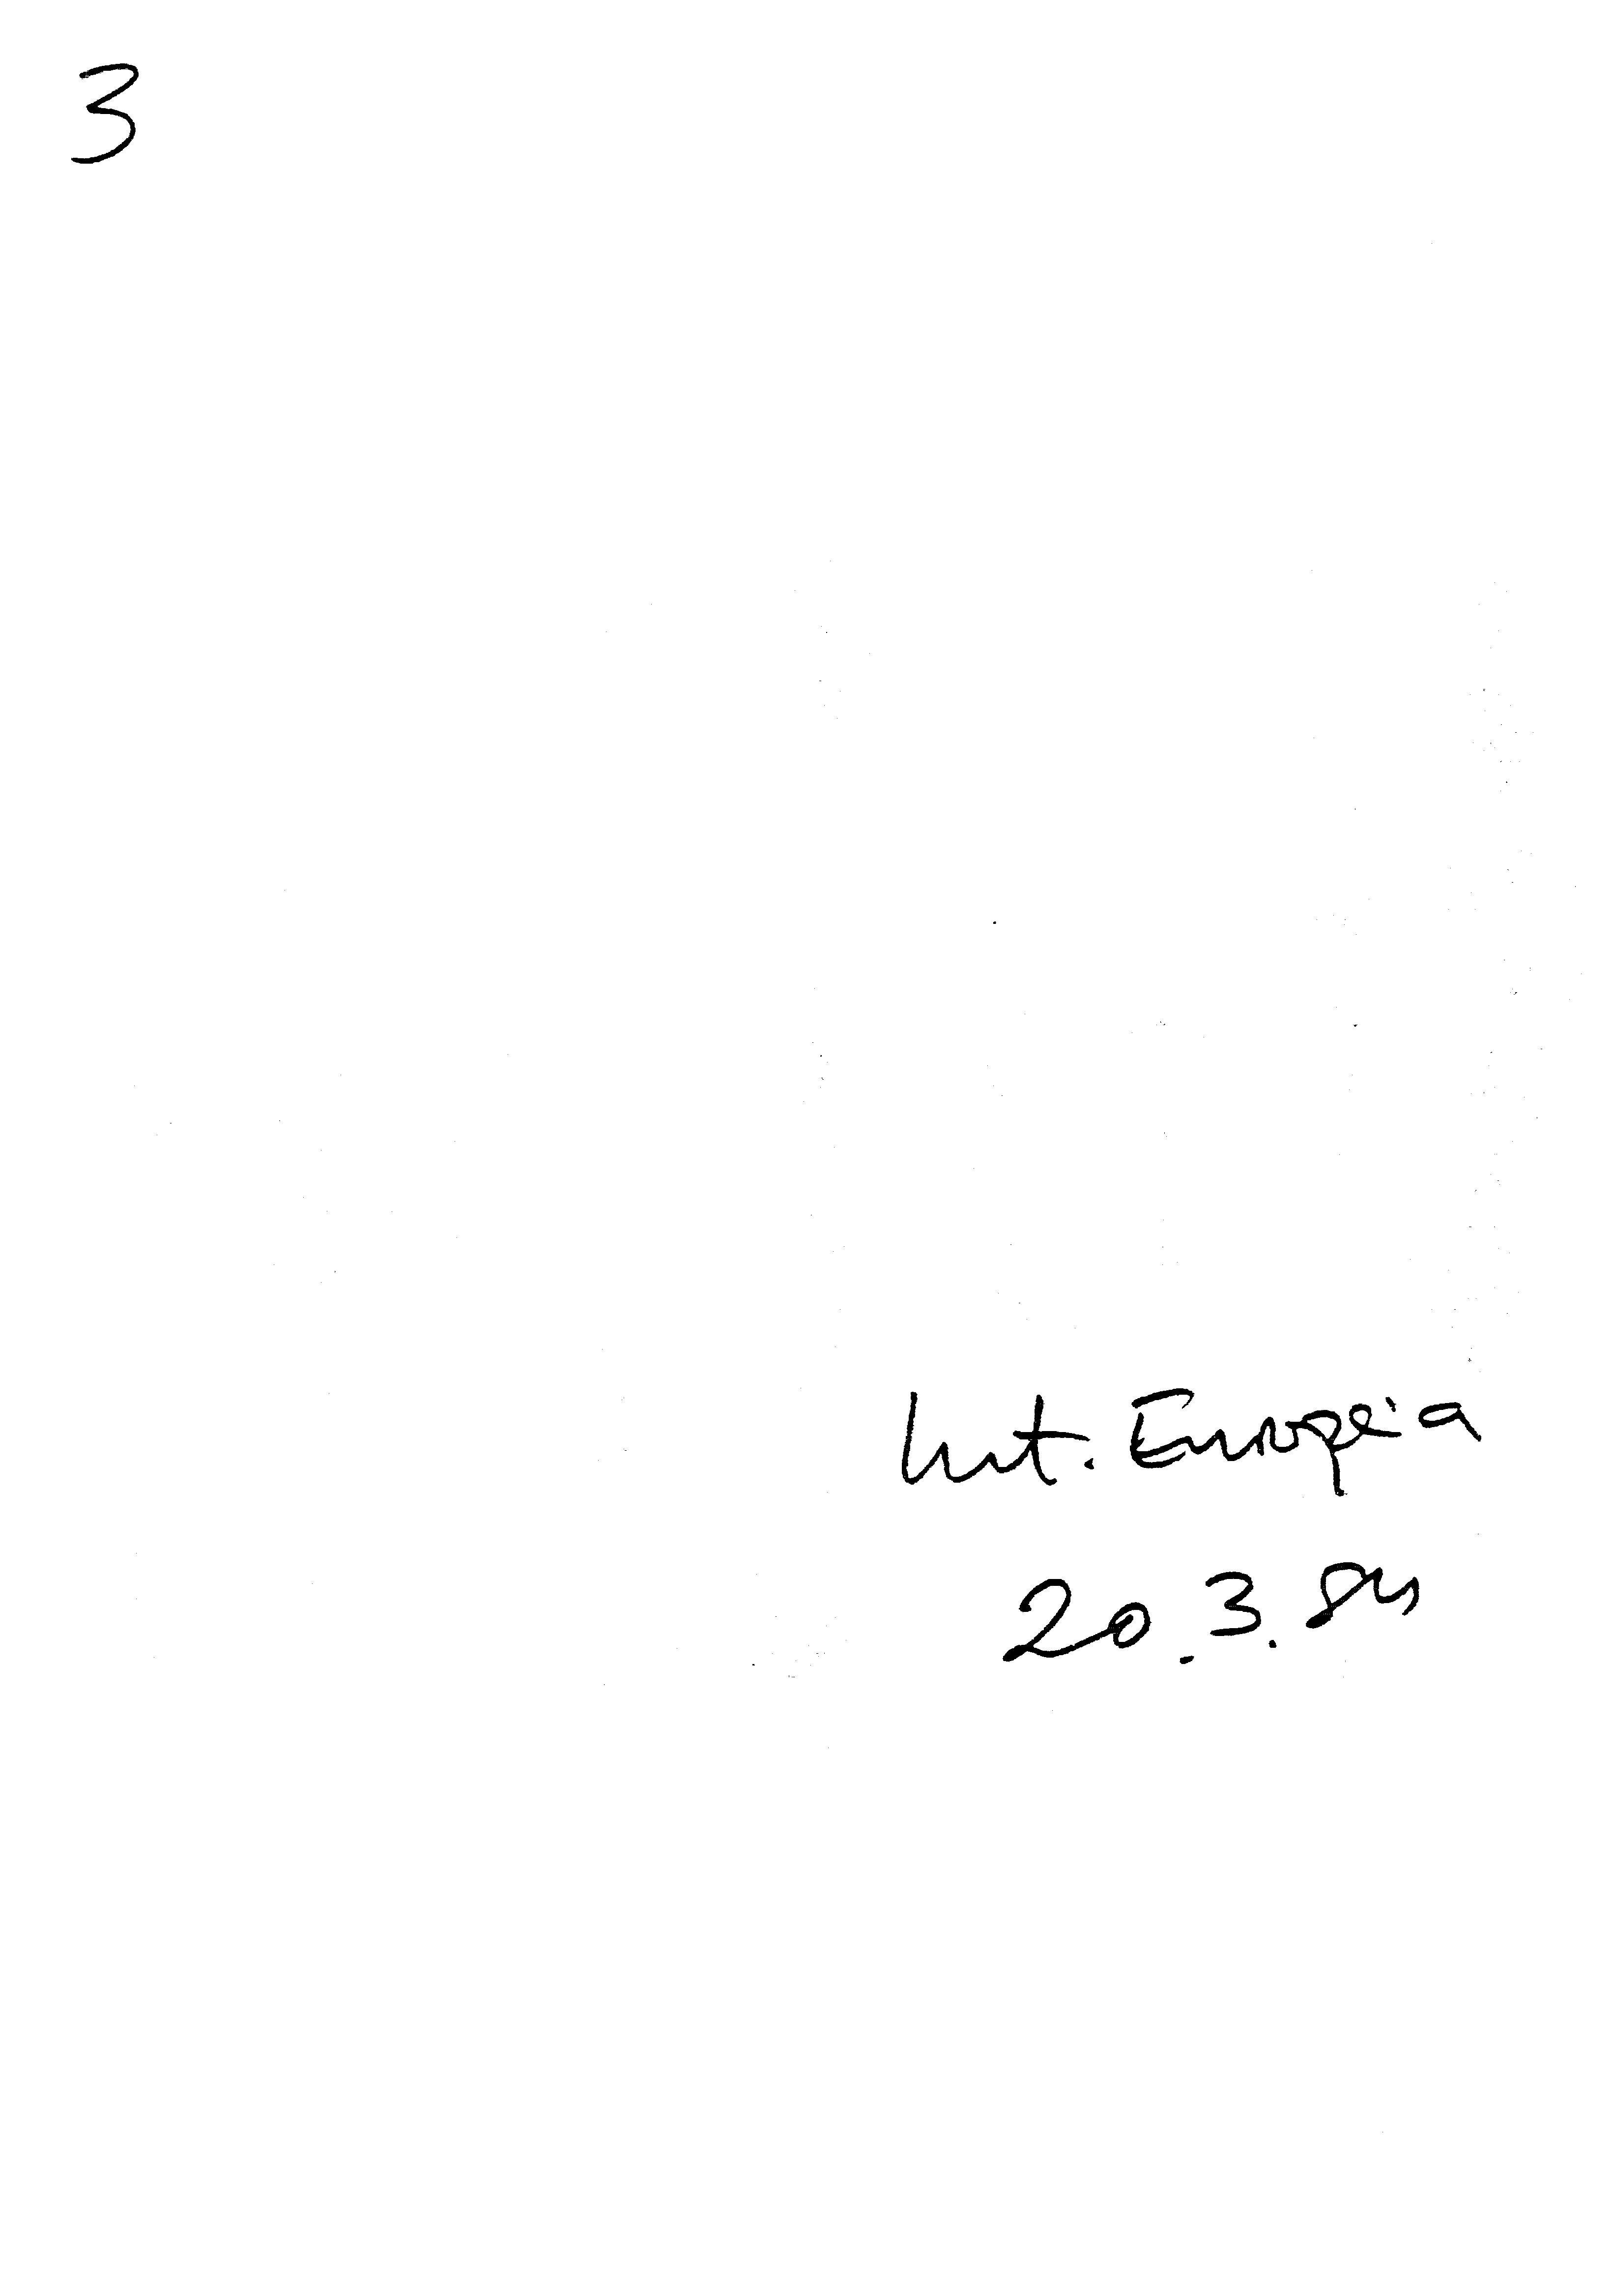 3
Int. Europeia
20.3.84